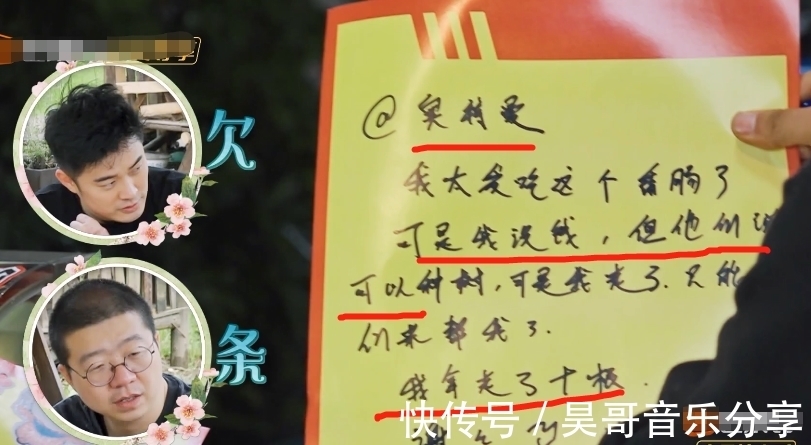 欠
条
@奥特曼
我太爱吃这个香肠了
可是我没钱，但他们说
可以种树，可是我走了.只能
们来帮我了.
我拿走了十根.
快传号 / 昊哥音乐分享